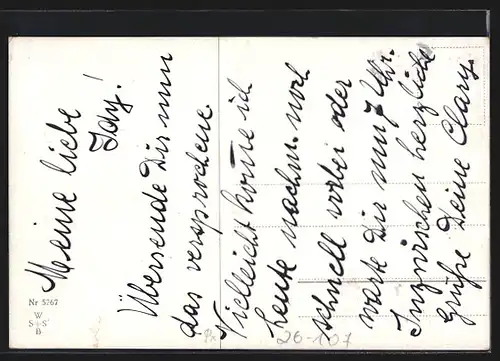 Meine liebe
Idy!
Übersende Dir nun
das versprochene.
Vielleicht komme ich
heute nachm. noch
schnell vorbei oder
warte Dir um 7 Uhr.
Inzwischen herzliche
Grüße Deine Clary.
Nr 5767
W
S+S
B
26-107